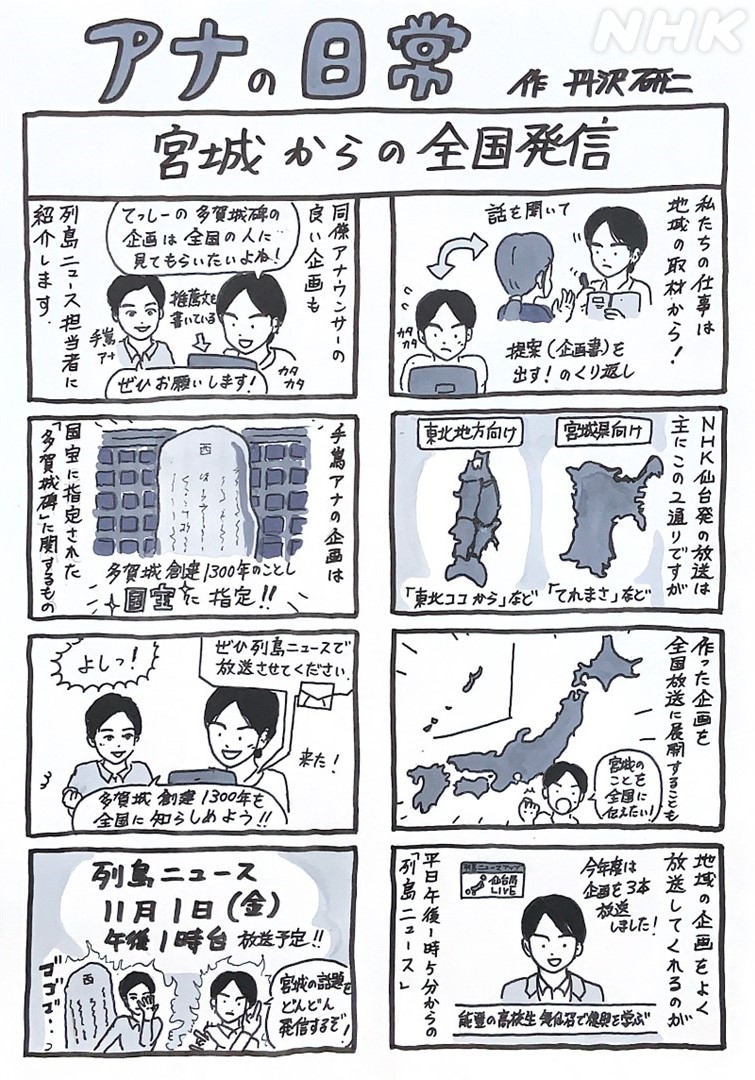 NHK
アナの日常
作 丹沢研二
宮城からの全国発信
私たちの仕事は
地域の取材から！
話を聞いて
カタ
カタ
提案（企画書）を
出す！のくり返し
NHK仙台発の放送は
主にこの2通りですが
宮城県向け
東北地方向け
「てれまさ」など
「東北ココから」など
作った企画を
全国放送に展開することも
宮城の
ことを
全国に
伝えたい！
地域の企画をよく
放送してくれるのが
平日午後1時5分からの
「列島ニュース」
列島ニュースアップ
仙台局
LIVE
今年度は
企画を3本
放送
しました！
能登の高校生 気仙沼で復興を学ぶ
同僚アナウンサーの
良い企画も
列島ニュース担当者に
紹介します.
てっしーの多賀城碑の
企画は全国の人に
見てもらいたいよね！
推薦文を
書いている
手嶌
アナ
カタ
カタ
ぜひお願いします！
手嶌アナの企画は
国宝に指定された
「多賀城碑」に関するもの
西
多賀城創建1300年のことし
国宝に指定!!
ぜひ列島ニュースで
放送させてください
よしっ！
来た！
多賀城創建1300年を
全国に知らしめよう!!
列島ニュース
11月1日（金）
午後1時台 放送予定!!
ゴゴゴ・・
西
宮城の話題を
どんどん
発信するぞ！